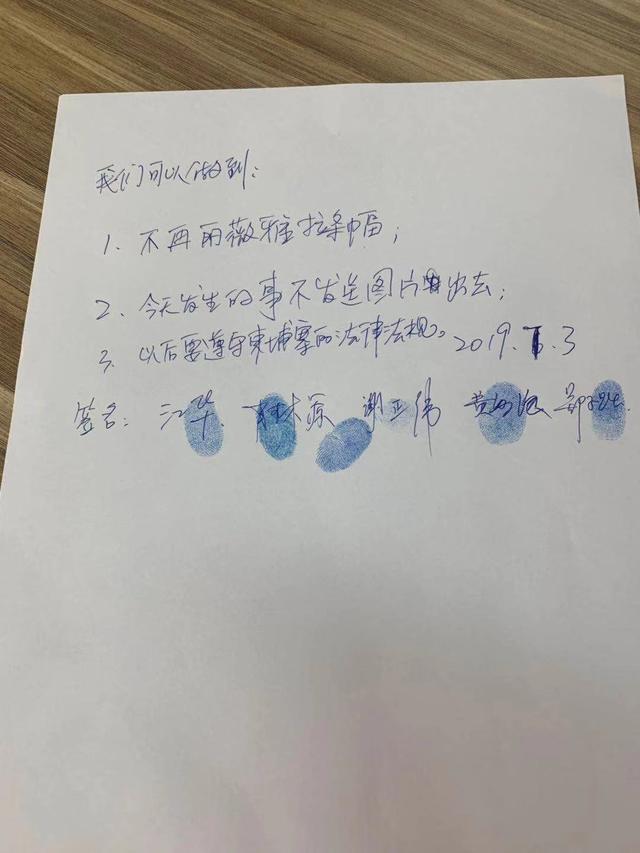 我们可以做到:
1、不再用薇雅拉条幅;
2、今天发生的事不发送图片出去;
3、以后要遵守柬埔寨的法律法规。2019.  .3
签名: 江华 林 谢正伟 黄 郑